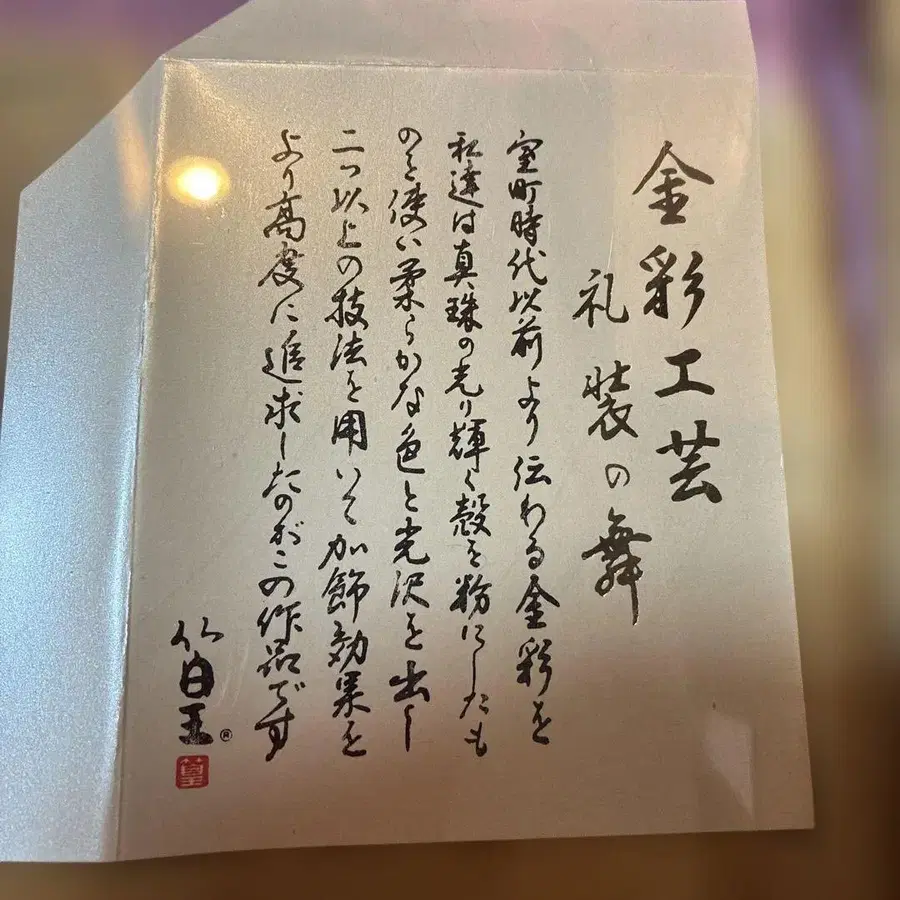 金彩工芸
礼装の舞
室町時代以前より伝わる金彩を
私達は真珠の光り輝く殻を粉にしたも
のを使い柔らかな色と光沢を出し
二つ以上の技法を用いて加飾効果を
より高度に追求したのがこの作品です
篁®
篁